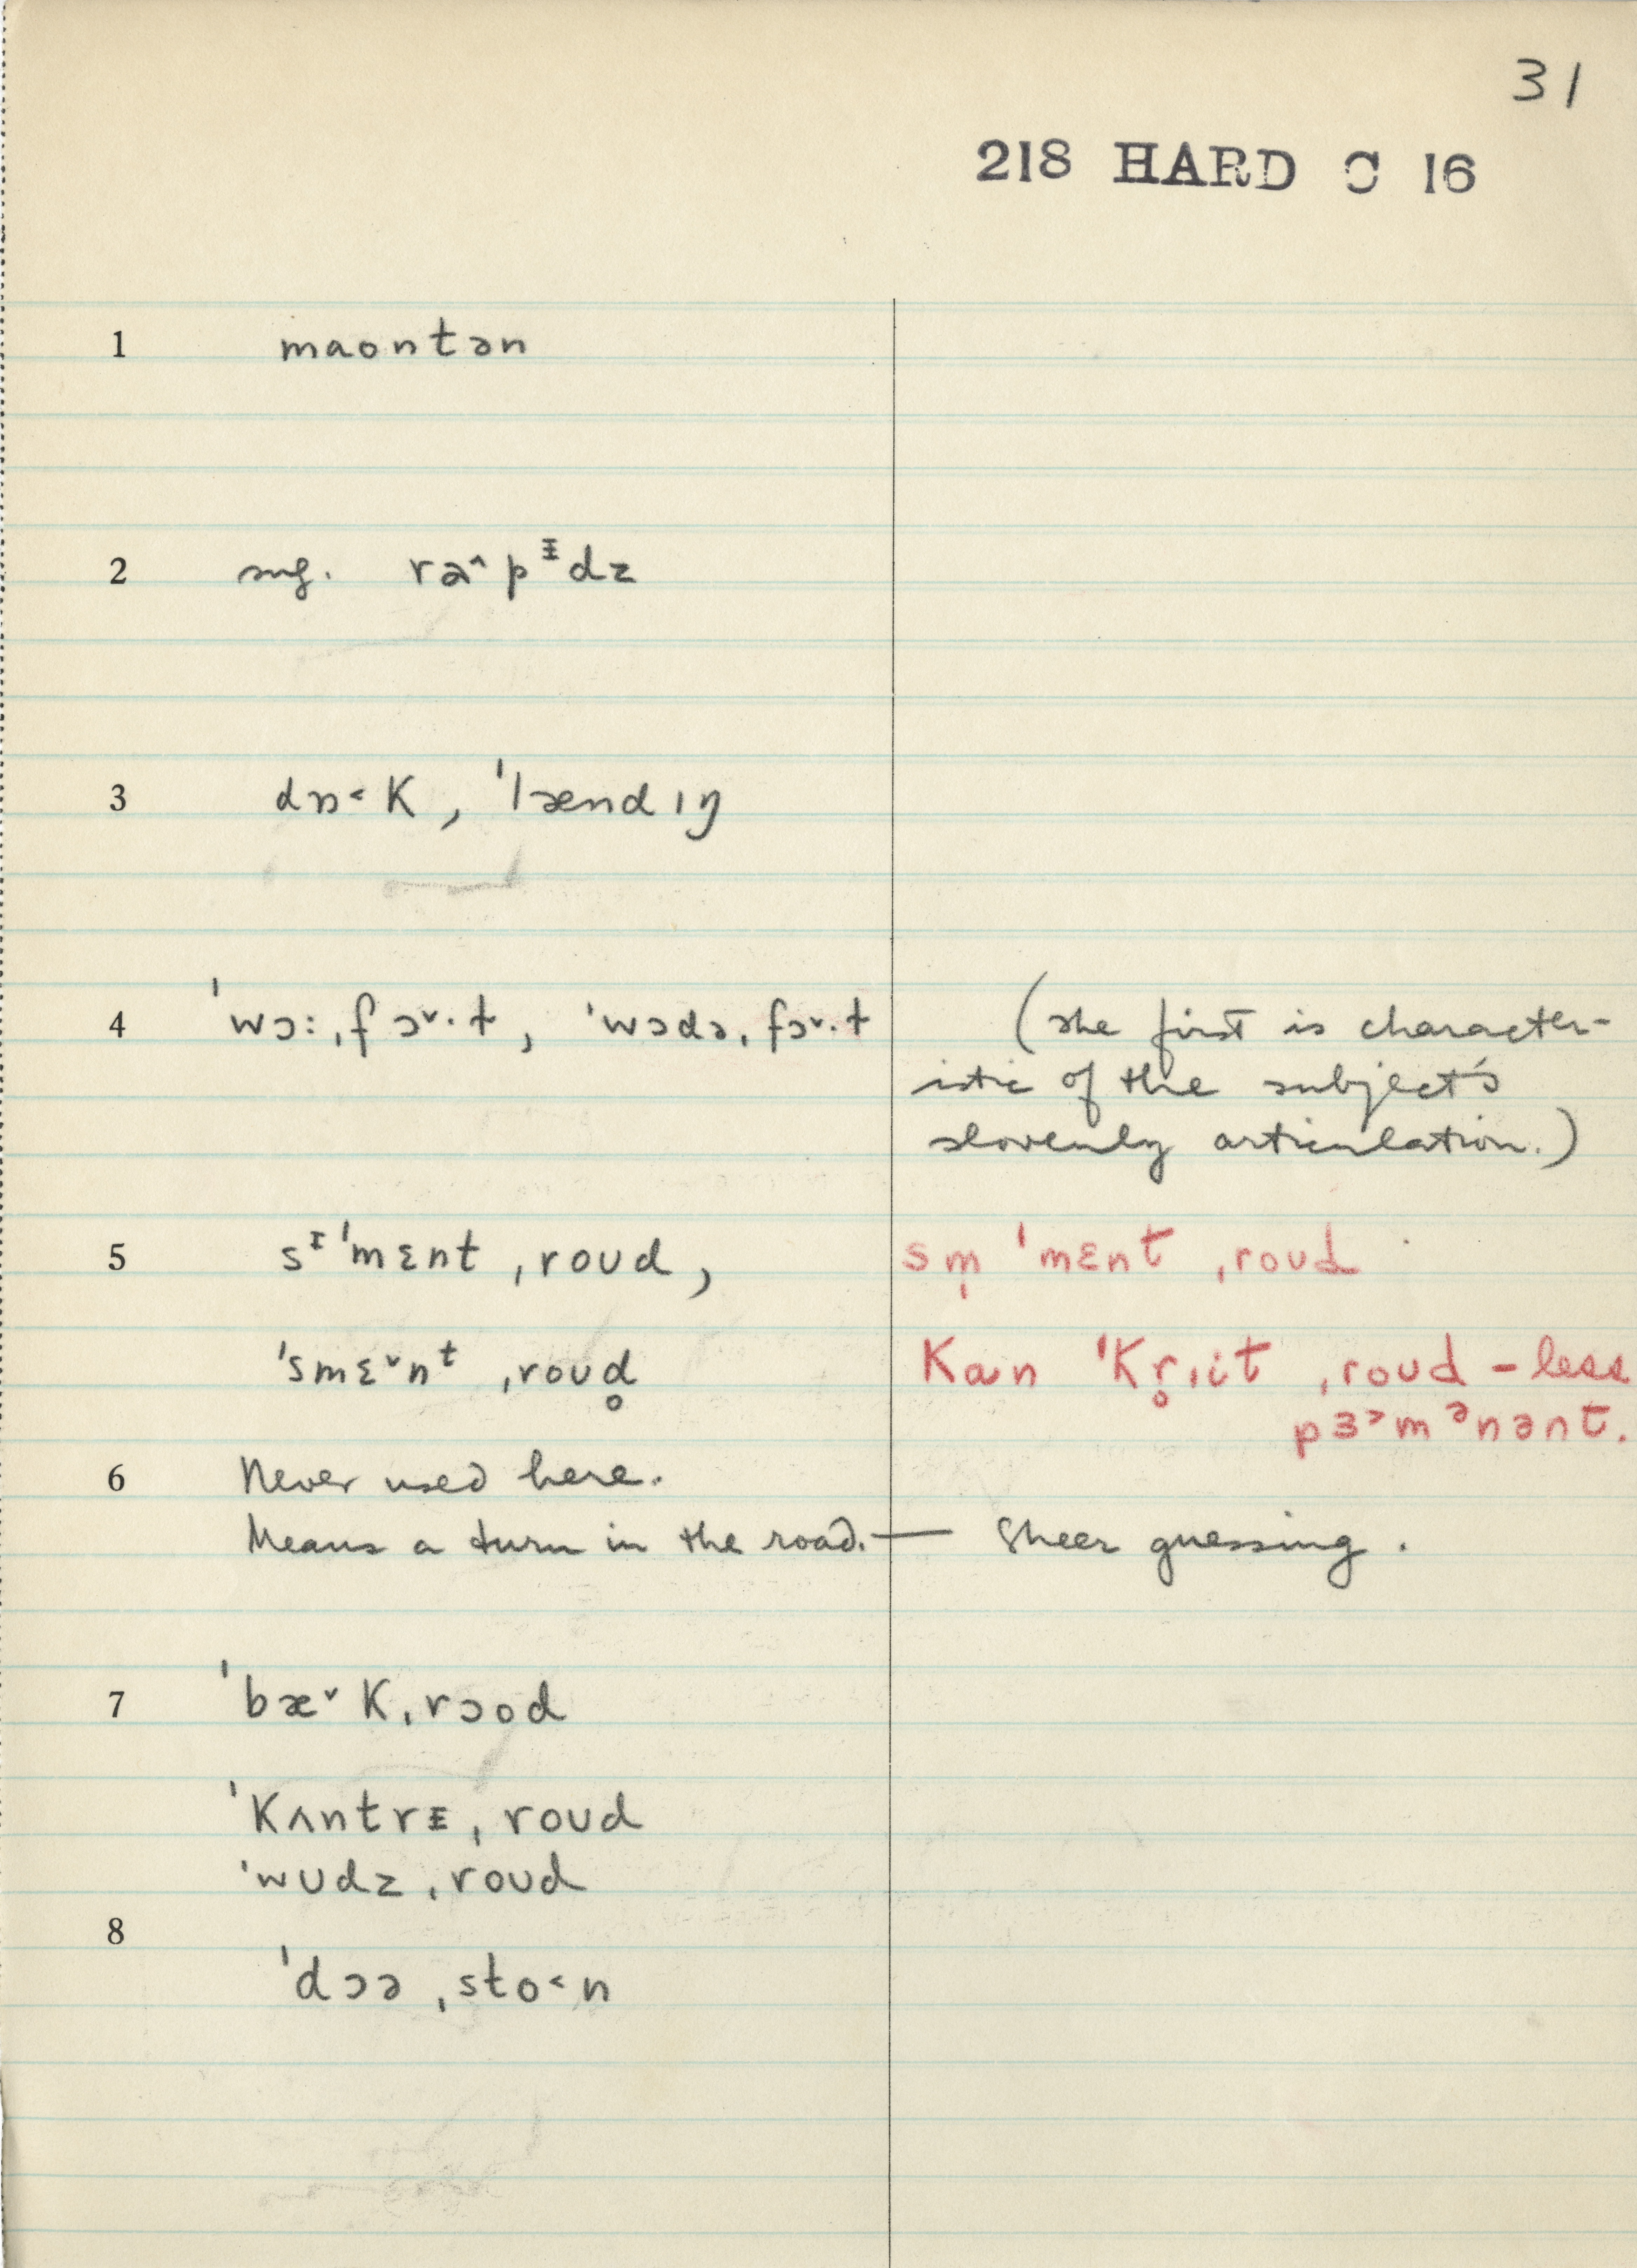 31
218 HARD C 16
1 maontən
2 sug. ra^pᵻdz
3 dɒ˂k, ˈlændɪŋ
4 ˈwɔ:ˌfɔˇ·t, ˈwɔdəˌfɔˇ·t (The first is character-
istic of the subject's
slovenly articulation.)
5 sᶦˈmɛnt ˌroʊd, sm̩ ˈmɛnt ˌroʊd
ˈsmɛˇnᵗ ˌroʊd̥ kan ˈkr̥ˌit ˌroʊd – less
pɜ˃mᵊnənt.
6 Never used here.
Means a turn in the road. — Sheer guessing.
7 ˈbæˇkˌrɔod
ˈkʌntrᵻˌroʊd
ˈwʊdzˌroʊd
8
ˈdɔəˌsto˂n